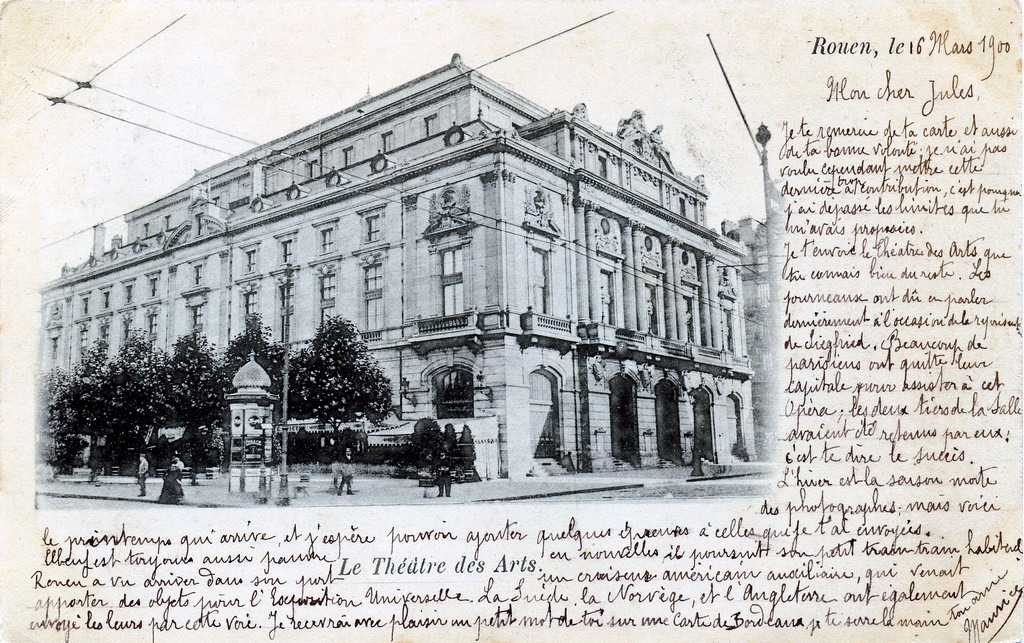 Rouen, le 16 Mars 1900
Mon cher Jules,
Je te remercie de ta carte et aussi
de ta bonne volonté, je n'ai pas
voulu cependant mettre cette
dernière trop à contribution, c'est pourquoi
j'ai dépassé les limites que tu
m'avais proposées.
Je t'envoie le théâtre des Arts, que
tu connais bien du reste. Les
journeaux ont dû en parler
dernièrement à l'occasion de la reprise
de Siegfried. Beaucoup de
parisiens ont quitté leur
Capitale pour assister à cet
Opéra; les deux tiers de la Salle
avaient été retenus par eux;
c'est te dire le succès.
L'hiver est la saison morte
des photographes, mais voici
le printemps qui arrive, et j'espère pouvoir ajouter quelques épreuves à celles que je t'ai envoyées.
Elbeuf est toujours aussi pauvre en nouvelles il poursuit son petit train train habituel.
Le Théâtre des Arts.
Rouen a vu arriver dans son port un croiseur américain auxiliaire, qui venait
apporter des objets pour l'Exposition Universelle. La Suède, la Norvège, et l'Angleterre ont également
envoyé les leurs par cette voie. Je recevrai avec plaisir un petit mot de toi sur une Carte de Bordeaux, je te serre la main
ton ami
Maurice